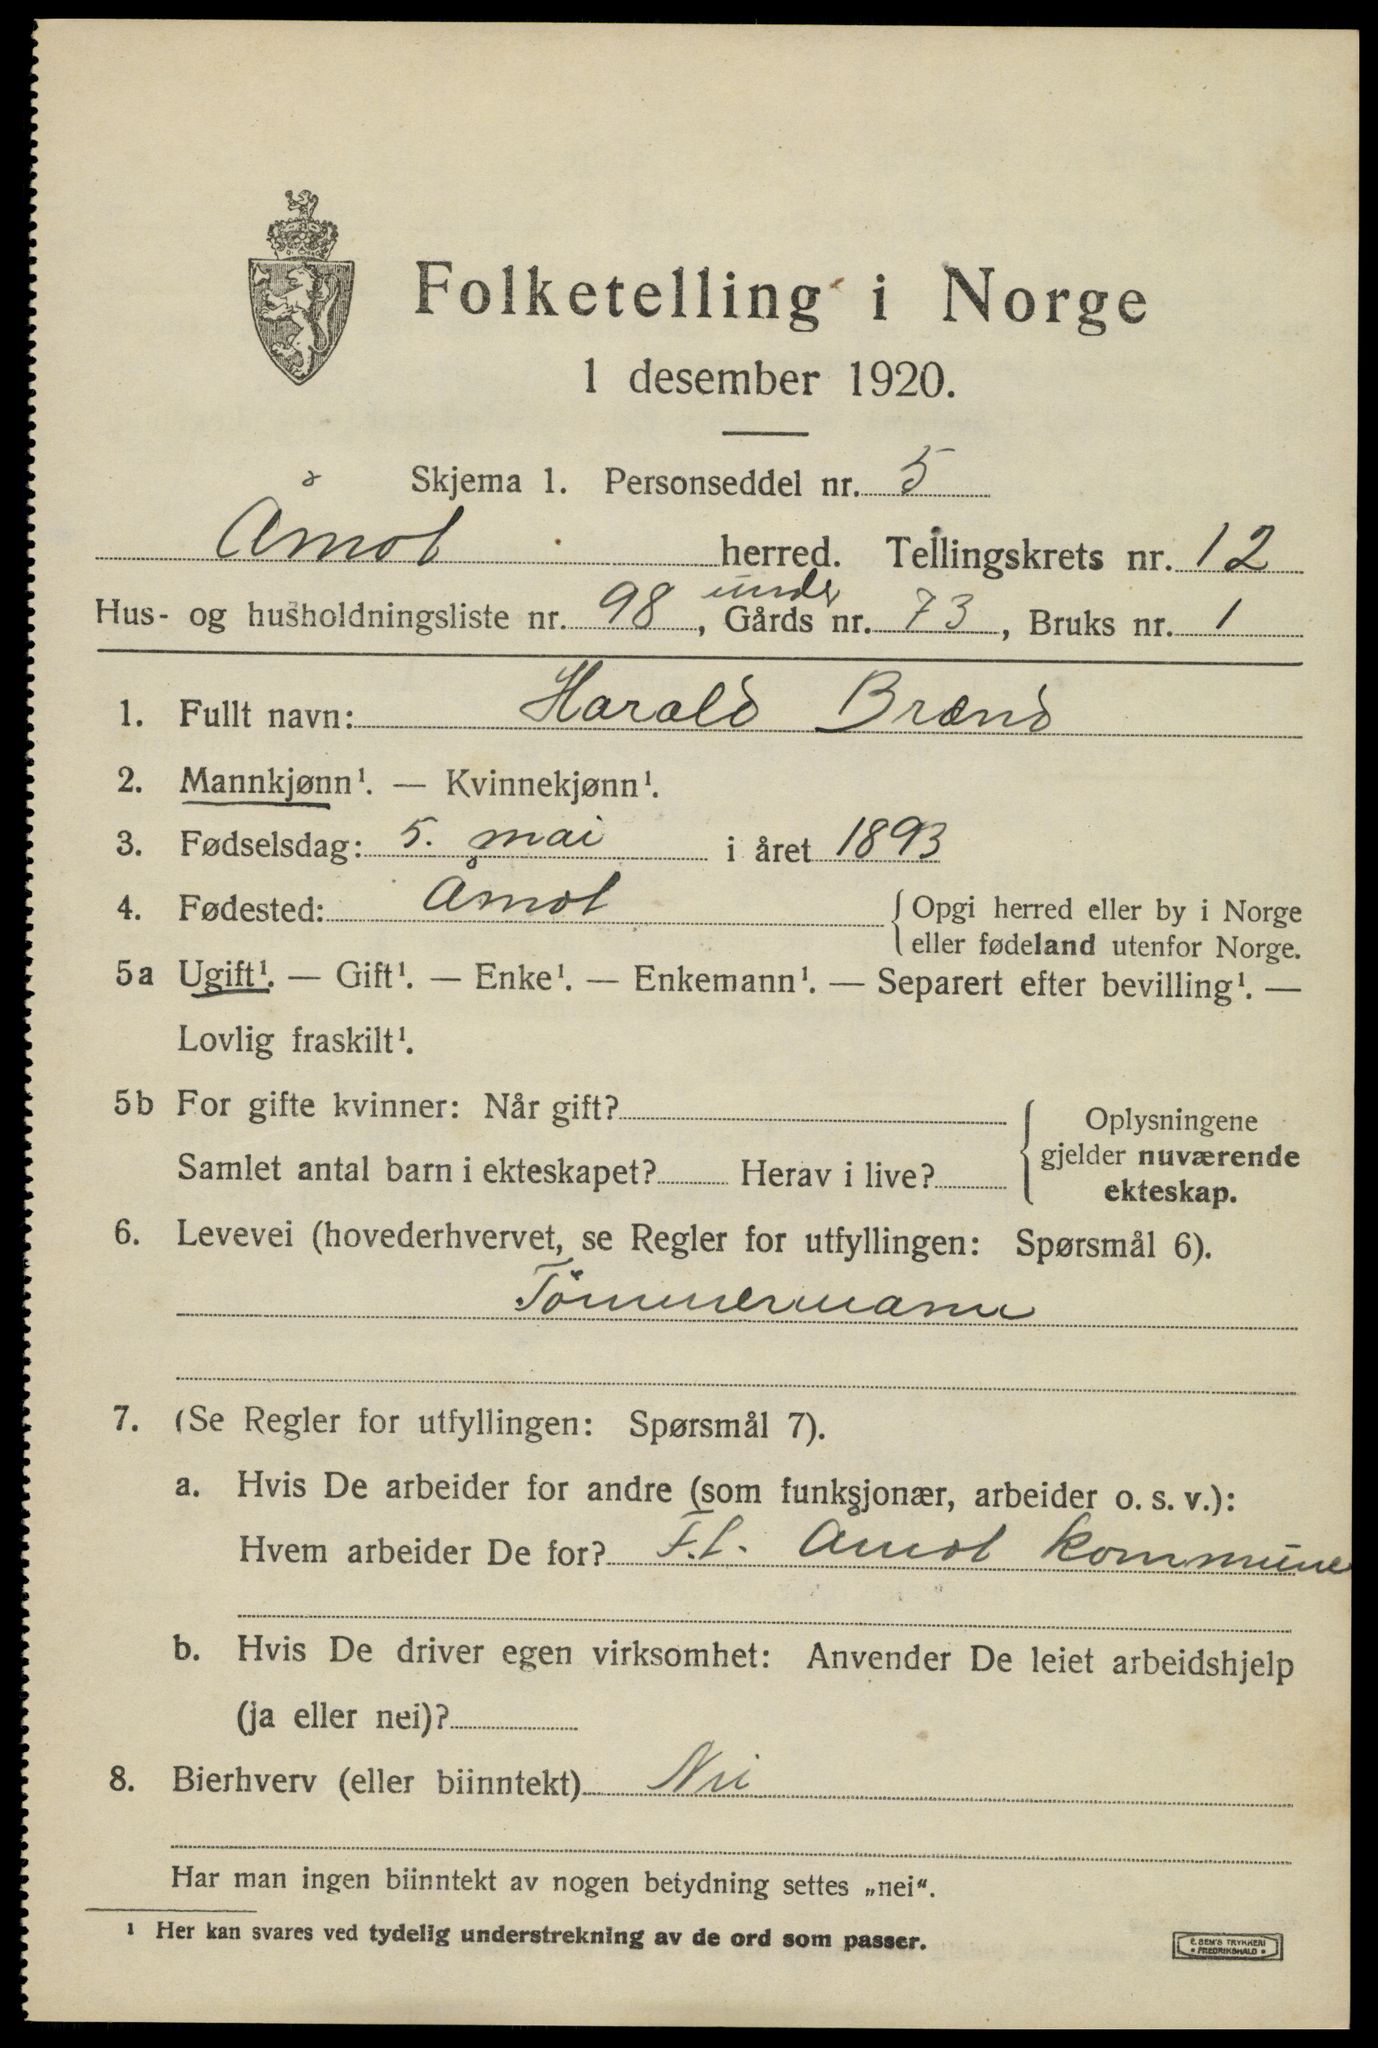 Folketelling i Norge
1 desember 1920.
Skjema 1. Personseddel nr. 5
Åmot herred. Tellingskrets nr. 12
under
Hus- og husholdningsliste nr. 98, Gårds nr. 73, Bruks nr. 1
1. Fullt navn: Harald Brænd
2. Mannkjønn¹. — Kvinnekjønn¹.
3. Fødselsdag: 5. mai i året 1893
4. Fødested: Åmot { Opgi herred eller by i Norge
eller fødeland utenfor Norge.
5a Ugift¹. — Gift¹. — Enke¹. — Enkemann¹. — Separert efter bevilling¹. —
Lovlig fraskilt¹.
5b For gifte kvinner: Når gift?
Samlet antal barn i ekteskapet? Herav i live?
{ Oplysningene
gjelder nuværende
ekteskap.
6. Levevei (hovederhvervet, se Regler for utfyllingen: Spørsmål 6).
Tömmermann
7. (Se Regler for utfyllingen: Spørsmål 7).
a. Hvis De arbeider for andre (som funksjonær, arbeider o. s. v.):
Hvem arbeider De for? F.t. Åmot kommune
b. Hvis De driver egen virksomhet: Anvender De leiet arbeidshjelp
(ja eller nei)?
8. Bierhverv (eller biinntekt) Nei
Har man ingen biinntekt av nogen betydning settes „nei“.
¹ Her kan svares ved tydelig understrekning av de ord som passer.
E. SEM'S TRYKKERI
• FREDRIKSHALD •